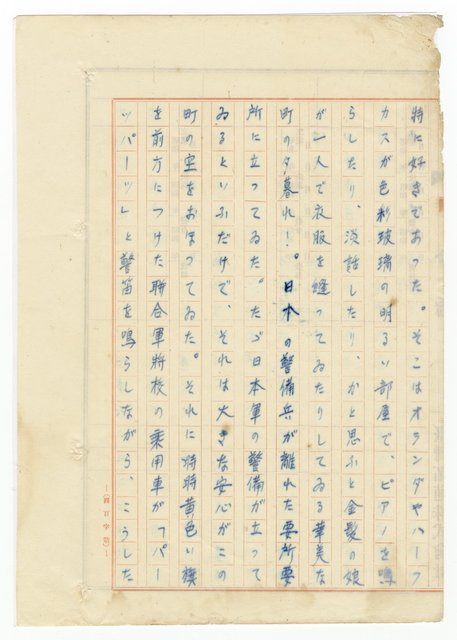 特に好きであつた。そこはオランダやハーフ
カスが色彩玻璃の明るい部屋で、ピアノを鳴
らしたり、談話したり、かと思ふと金髪の娘
が一人で衣服を縫つてゐたりしてゐる華美な
町の夕暮れ！。日本の警備兵が離れた要所要
所に立つてゐた。たゞ日本軍の警備が立つて
ゐるといふだけで、それは大きな安心がこの
町の空をおほつてゐた。それに時時黄色い旗
を前方につけた聯合軍將校の乗用車が「パー
ッパーッ」と警笛を鳴らしながら、こうした